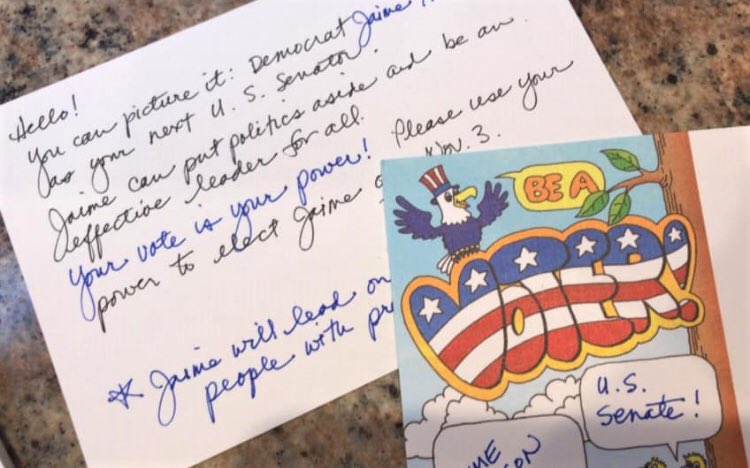 Hello!
You can picture it: Democrat Jaime
as your next U.S. Senator.
Jaime can put politics aside and be an
effective leader for all.
Your vote is your power! Please use your
power to elect Jaime Nov. 3.
* Jaime will lead on
people with
BE A
VOTER!
U.S.
Senate!